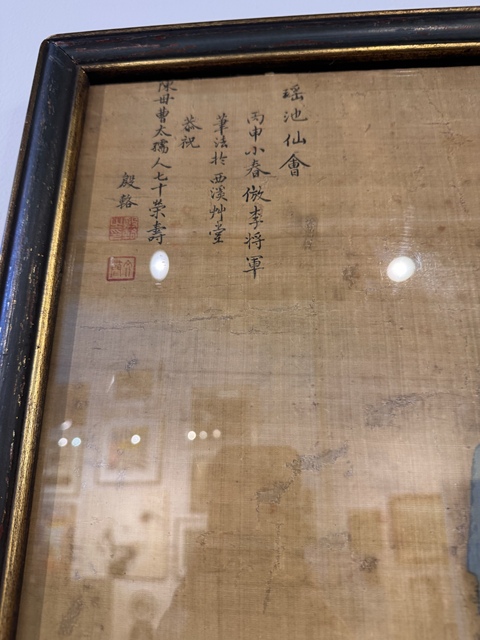 瑶池仙會
丙申小春倣李將軍
筆法於西溪艸堂
恭祝
陳母曹太孺人七十榮壽
殷輅